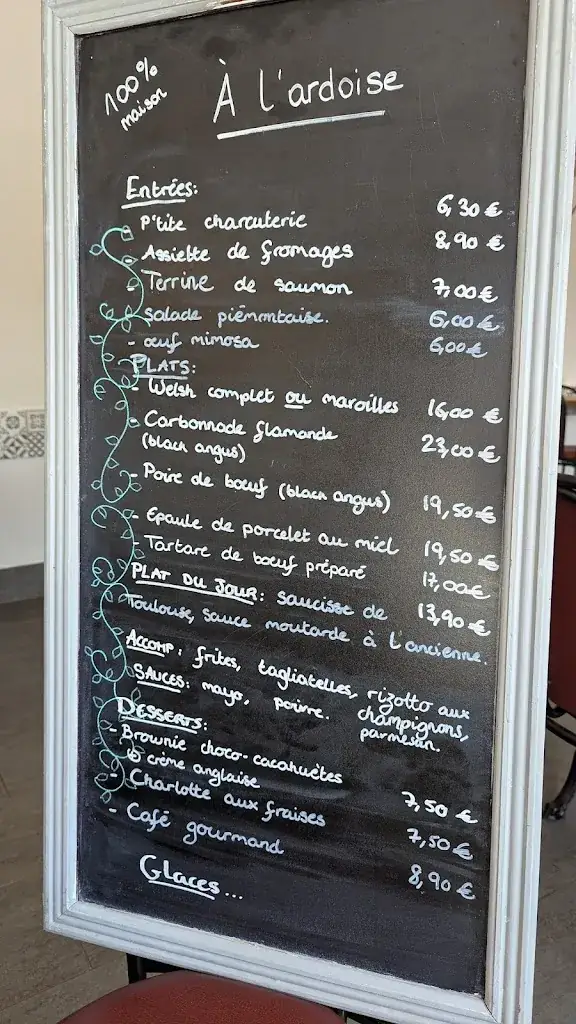 100%
maison
À l'ardoise
Entrées:
- P'tite charcuterie 6,30 €
- Assiette de fromages 8,90 €
- Terrine de saumon 7,00 €
- Salade piémontaise. 6,00 €
- œuf mimosa 6,00 €
PLATS:
- Welsh complet ou maroilles 16,00 €
- Carbonnade flamande 23,00 €
(black angus)
- Poire de bœuf (black angus) 19,50 €
- Epaule de porcelet au miel 19,50 €
- Tartare de bœuf préparé 17,00 €
PLAT DU JOUR: saucisse de 13,90 €
Toulouse, sauce moutarde à l'ancienne.
ACCOMP: frites, tagliatelles, rizotto aux
champignons,
parmesan.
SAUCES: mayo, poivre.
DESSERTS:
- Brownie choco-cacahuètes
crème anglaise 7,50 €
- Charlotte aux fraises 7,50 €
- Café gourmand 8,90 €
Glaces...